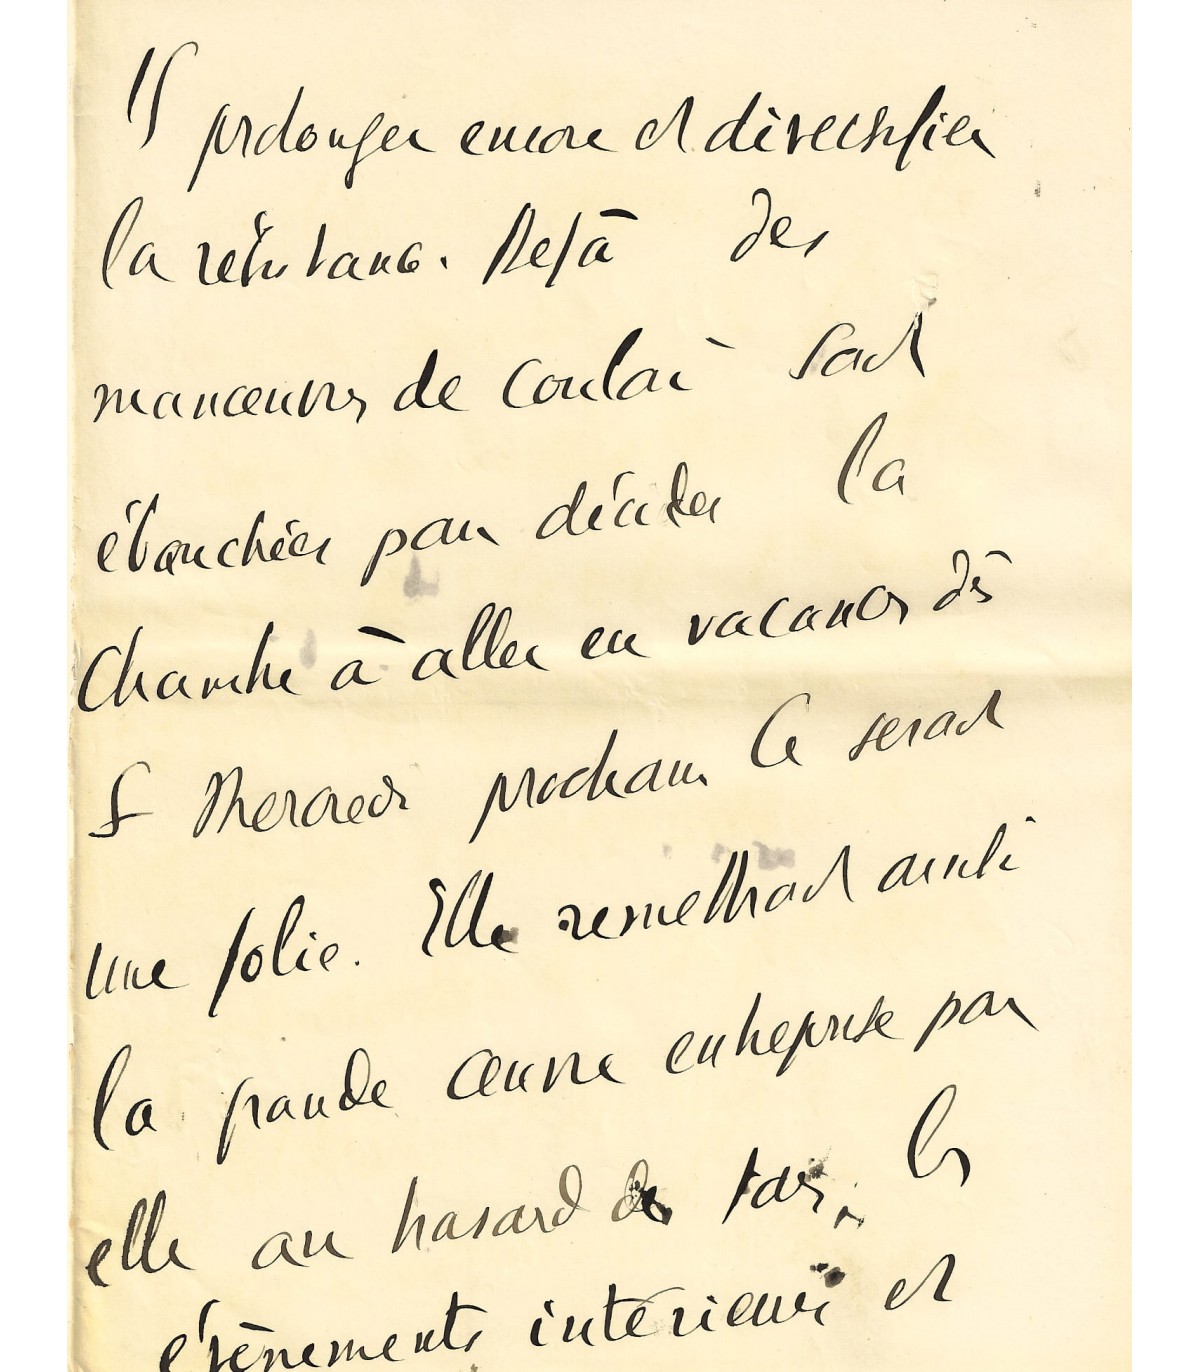 prolonger encore et diversifier
la résistance. Déjà des
manœuvres de couloir sont
ébauchées pour décider la
Chambre à aller en vacances dès
Mercredi prochain Ce serait
une folie. Elle remettrait ainsi
la grande œuvre entreprise par
elle au hasard de tous les
évènements intérieurs et